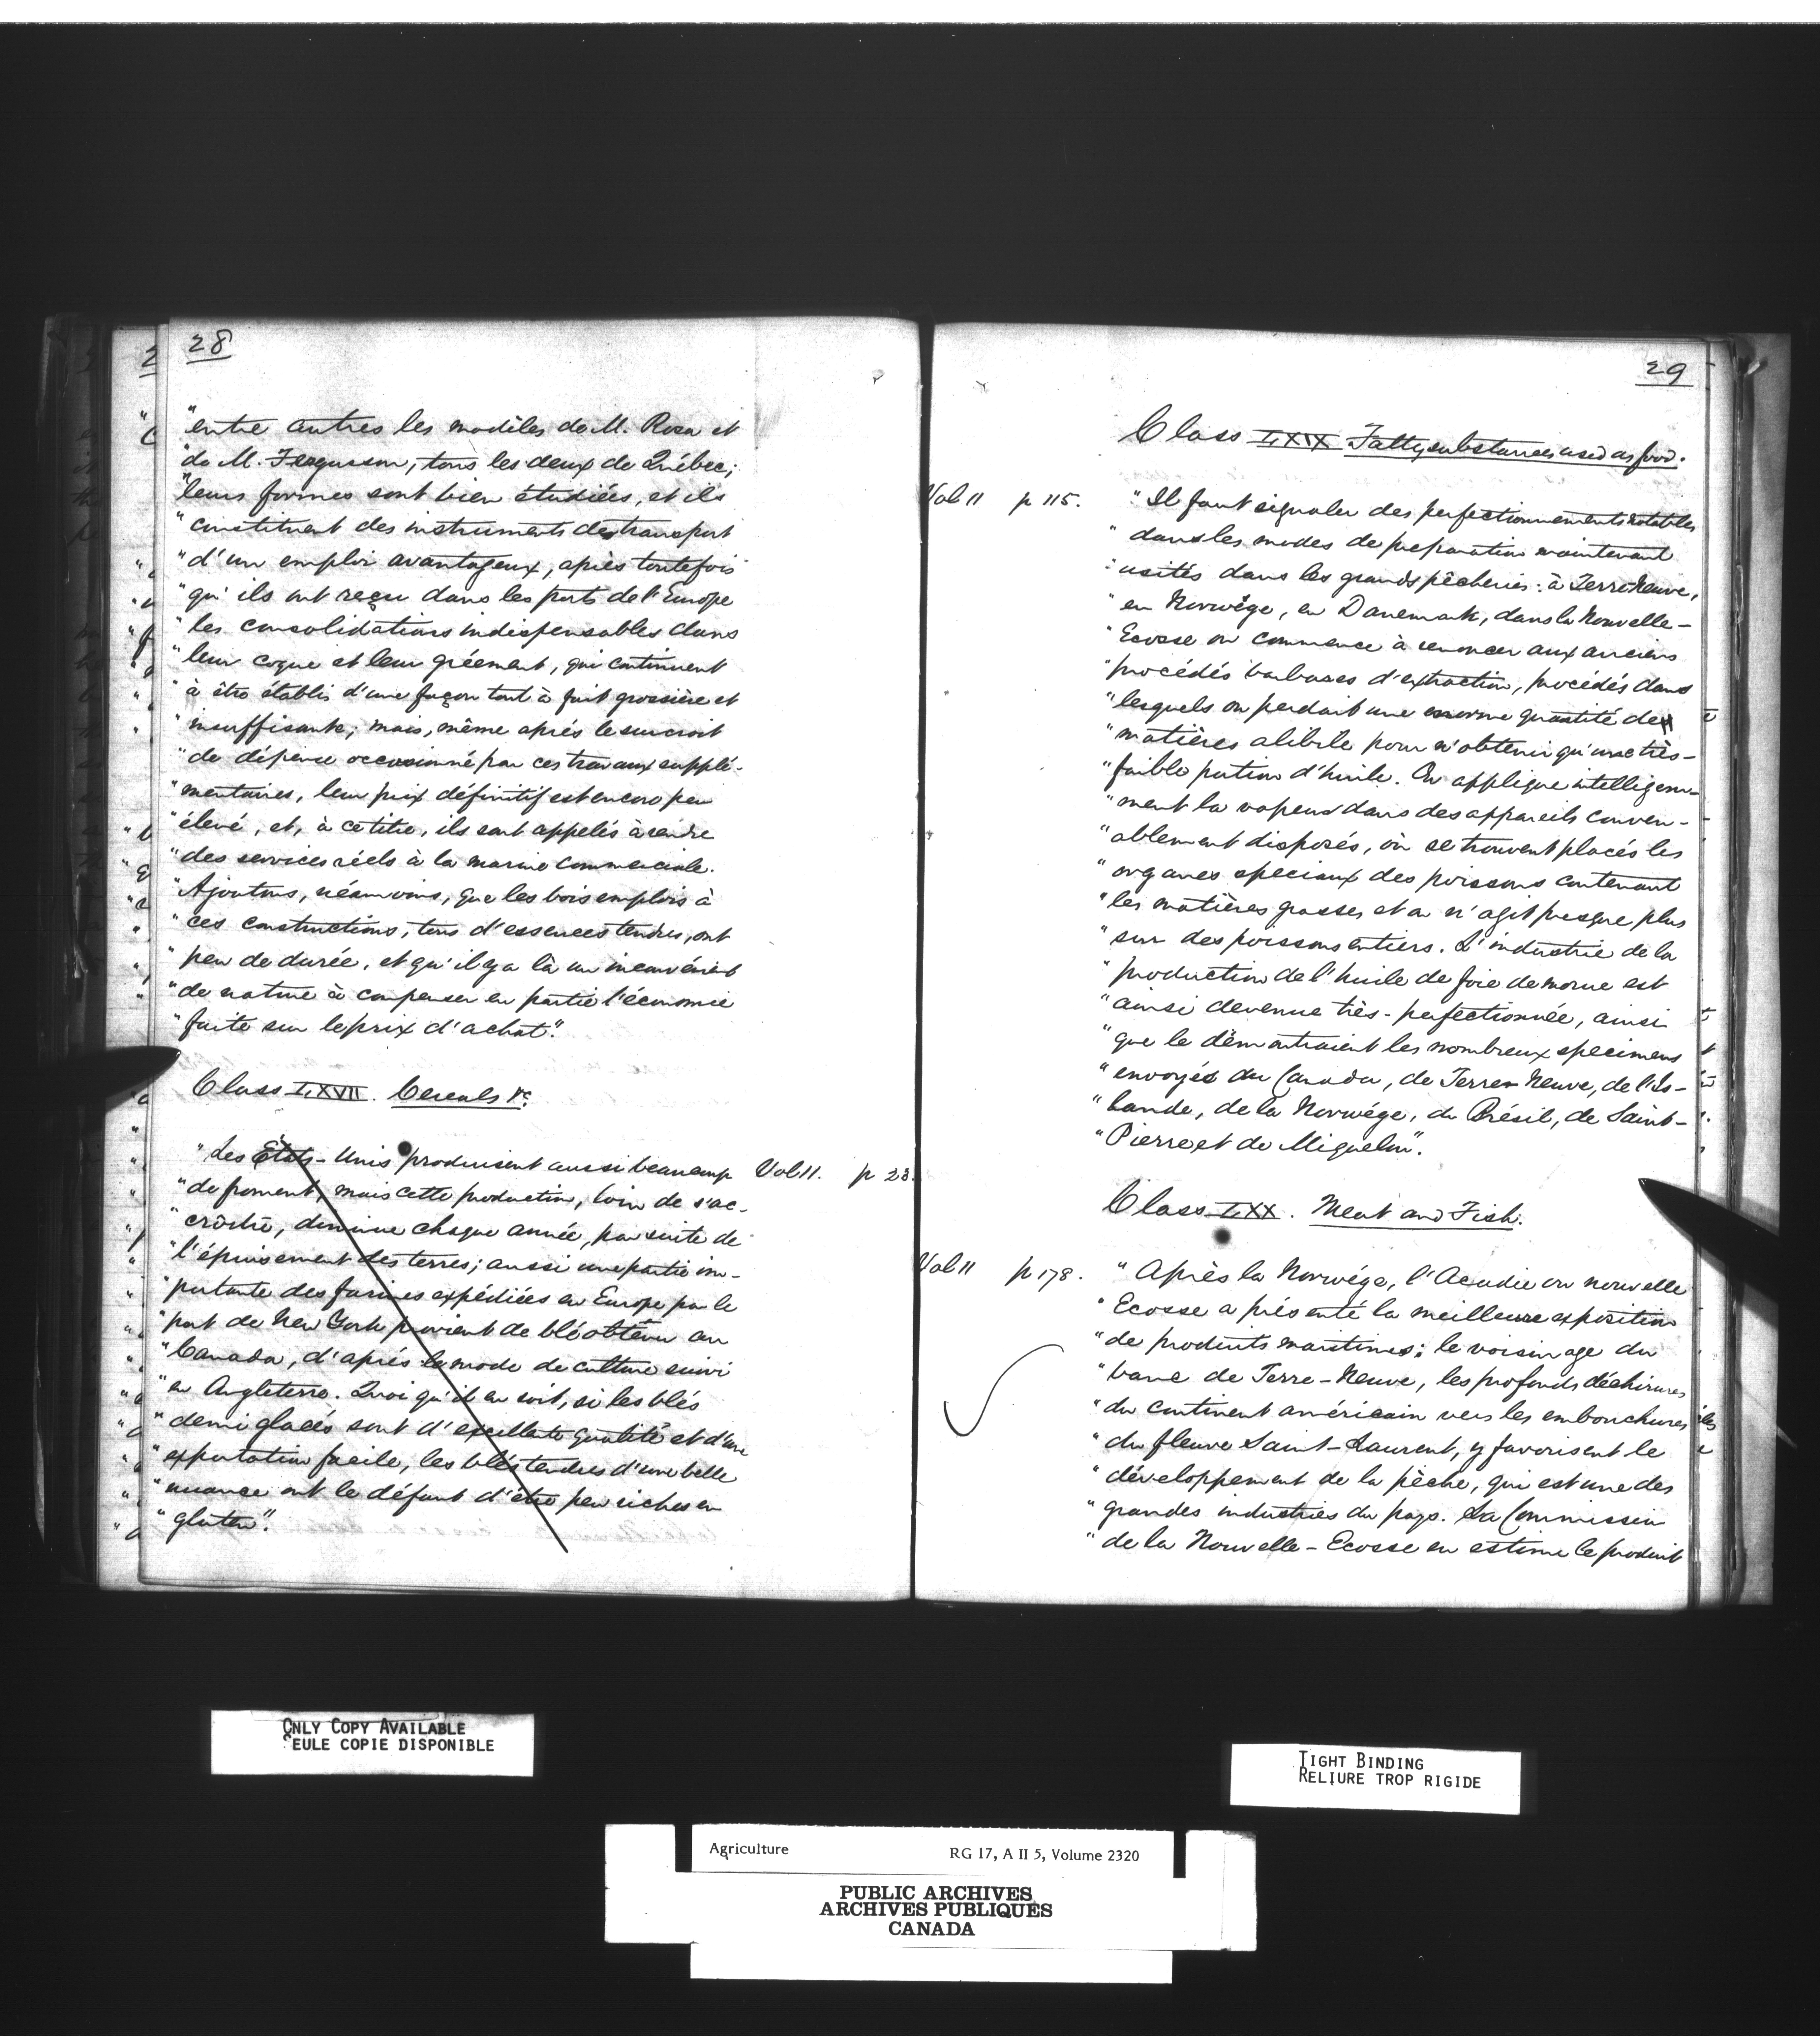 28
"entre autres les modèles de M. Rosa et
"de M. Fergusson, tous les deux de Québec;
"leurs formes sont bien étudiées, et ils
"constituent des instruments de transport
"d'un emploi avantageux, après toutefois
"qu'ils ont reçu dans les ports de l'Europe
"les consolidations indispensables dans
"leur coque et leur gréement, qui continuent
"à être établis d'une façon tout à fait grossière et
"insuffisante; mais, même après le surcroit
"de dépense occasionné par ces travaux supplé-
"mentaires, leur prix définitif est encore peu
"élevé, et, à ce titre, ils sont appelés à rendre
"des services réels à la marine commerciale.
"Ajoutons, néanmoins, que les bois emploiés à
"ces constructions, tous d'essences tendres, ont
"peu de durée, et qu'il y a là un inconvénient
"de nature à compenser en partie l'économie
"faite sur le prix d'achat".
Class LXVII. Cereals &c.
"Les États-Unis produisent aussi beaucoup Vol 11. p 23.
"de froment, mais cette production, loin de s'ac-
"croître, diminue chaque année, par suite de
"l'épuisement des terres; aussi une partie im-
"portante des farines expédiées en Europe par le
"port de New York provient de blé obtenu au
"Canada, d'après le mode de culture suivi
"en Angleterre. Quoi qu'il en soit, si les blés
"demi glacés sont d'excellente qualité et d'une
"exportation facile, les blés tendres d'une belle
"nuance ont le défaut d'être peu riches en
"gluten".
29
Class LXIX Fatty substances used as food.
Vol 11 p 115. "Il faut signaler des perfectionnements notables
"dans les modes de preparation maintenant
"usités dans les grands pêcheries: à Terre Neuve,
"en Norwége, en Danemark, dans la Nouvelle-
"Ecosse on commence à renoncer aux anciens
"procédés barbares d'extraction, procédés dans
"lesquels on perdait une enorme quantité de
"matières alibile pour n'obtenir qu'une très-
"faible portion d'huile. On applique intelligem-
"ment la vapeur dans des appareils conven-
"ablement disposés, où se trouvent placés les
"organes speciaux des poissons contenant
"les matières grasses et on n'agit presque plus
"sur des poissons entiers. L'industrie de la
"production de l'huile de foie de morue est
"ainsi devenue très-perfectionnée, ainsi
"que le démontraient les nombreux specimens
"envoyés du Canada, de Terre Neuve, de l'Is-
"lande, de la Norwége, du Brésil, de Saint-
"Pierre et de Miquelon".
Class LXX. Meat and Fish.
Vol 11 p 178. "Après la Norwége, l'Acadie ou nouvelle
"Ecosse a présenté la meilleure exposition
"de produits maritimes; le voisinage du
"banc de Terre-Neuve, les profonds déchirures
"du continent américain vers les embouchures
"du fleuve Saint-Laurent, y favorisent le
"développement de la pêche, qui est une des
"grandes industries du pays. La Commission
"de la Nouvelle-Ecosse en estime le produit
ONLY COPY AVAILABLE
SEULE COPIE DISPONIBLE
TIGHT BINDING
RELIURE TROP RIGIDE
Agriculture RG 17, A II 5, Volume 2320
PUBLIC ARCHIVES
ARCHIVES PUBLIQUES
CANADA